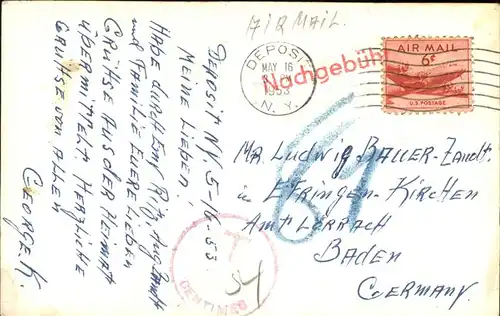 AIR MAIL.
DEPOSIT
MAY 16
PM
1953
N.Y.
Nachgebühr
AIR MAIL
6¢
U.S. POSTAGE
DEPOSIT NY. 5-16.53.
MEINE LIEBEN!
HABE DURCH EMF
UND FAMILIE EUERE LIEBEN
GRÜHSE AUS DER HEIMAT
ÜBERMITELT. HERZLICHE
GRÜHSE VON ALLEN
GEORGE K.
MR. LUDWIG BAUER-ZANDT
in EFRINGEN-KIRCHEN
AMT LÖRRACH
BADEN
GERMANY.
61
T
54
CENTIMES